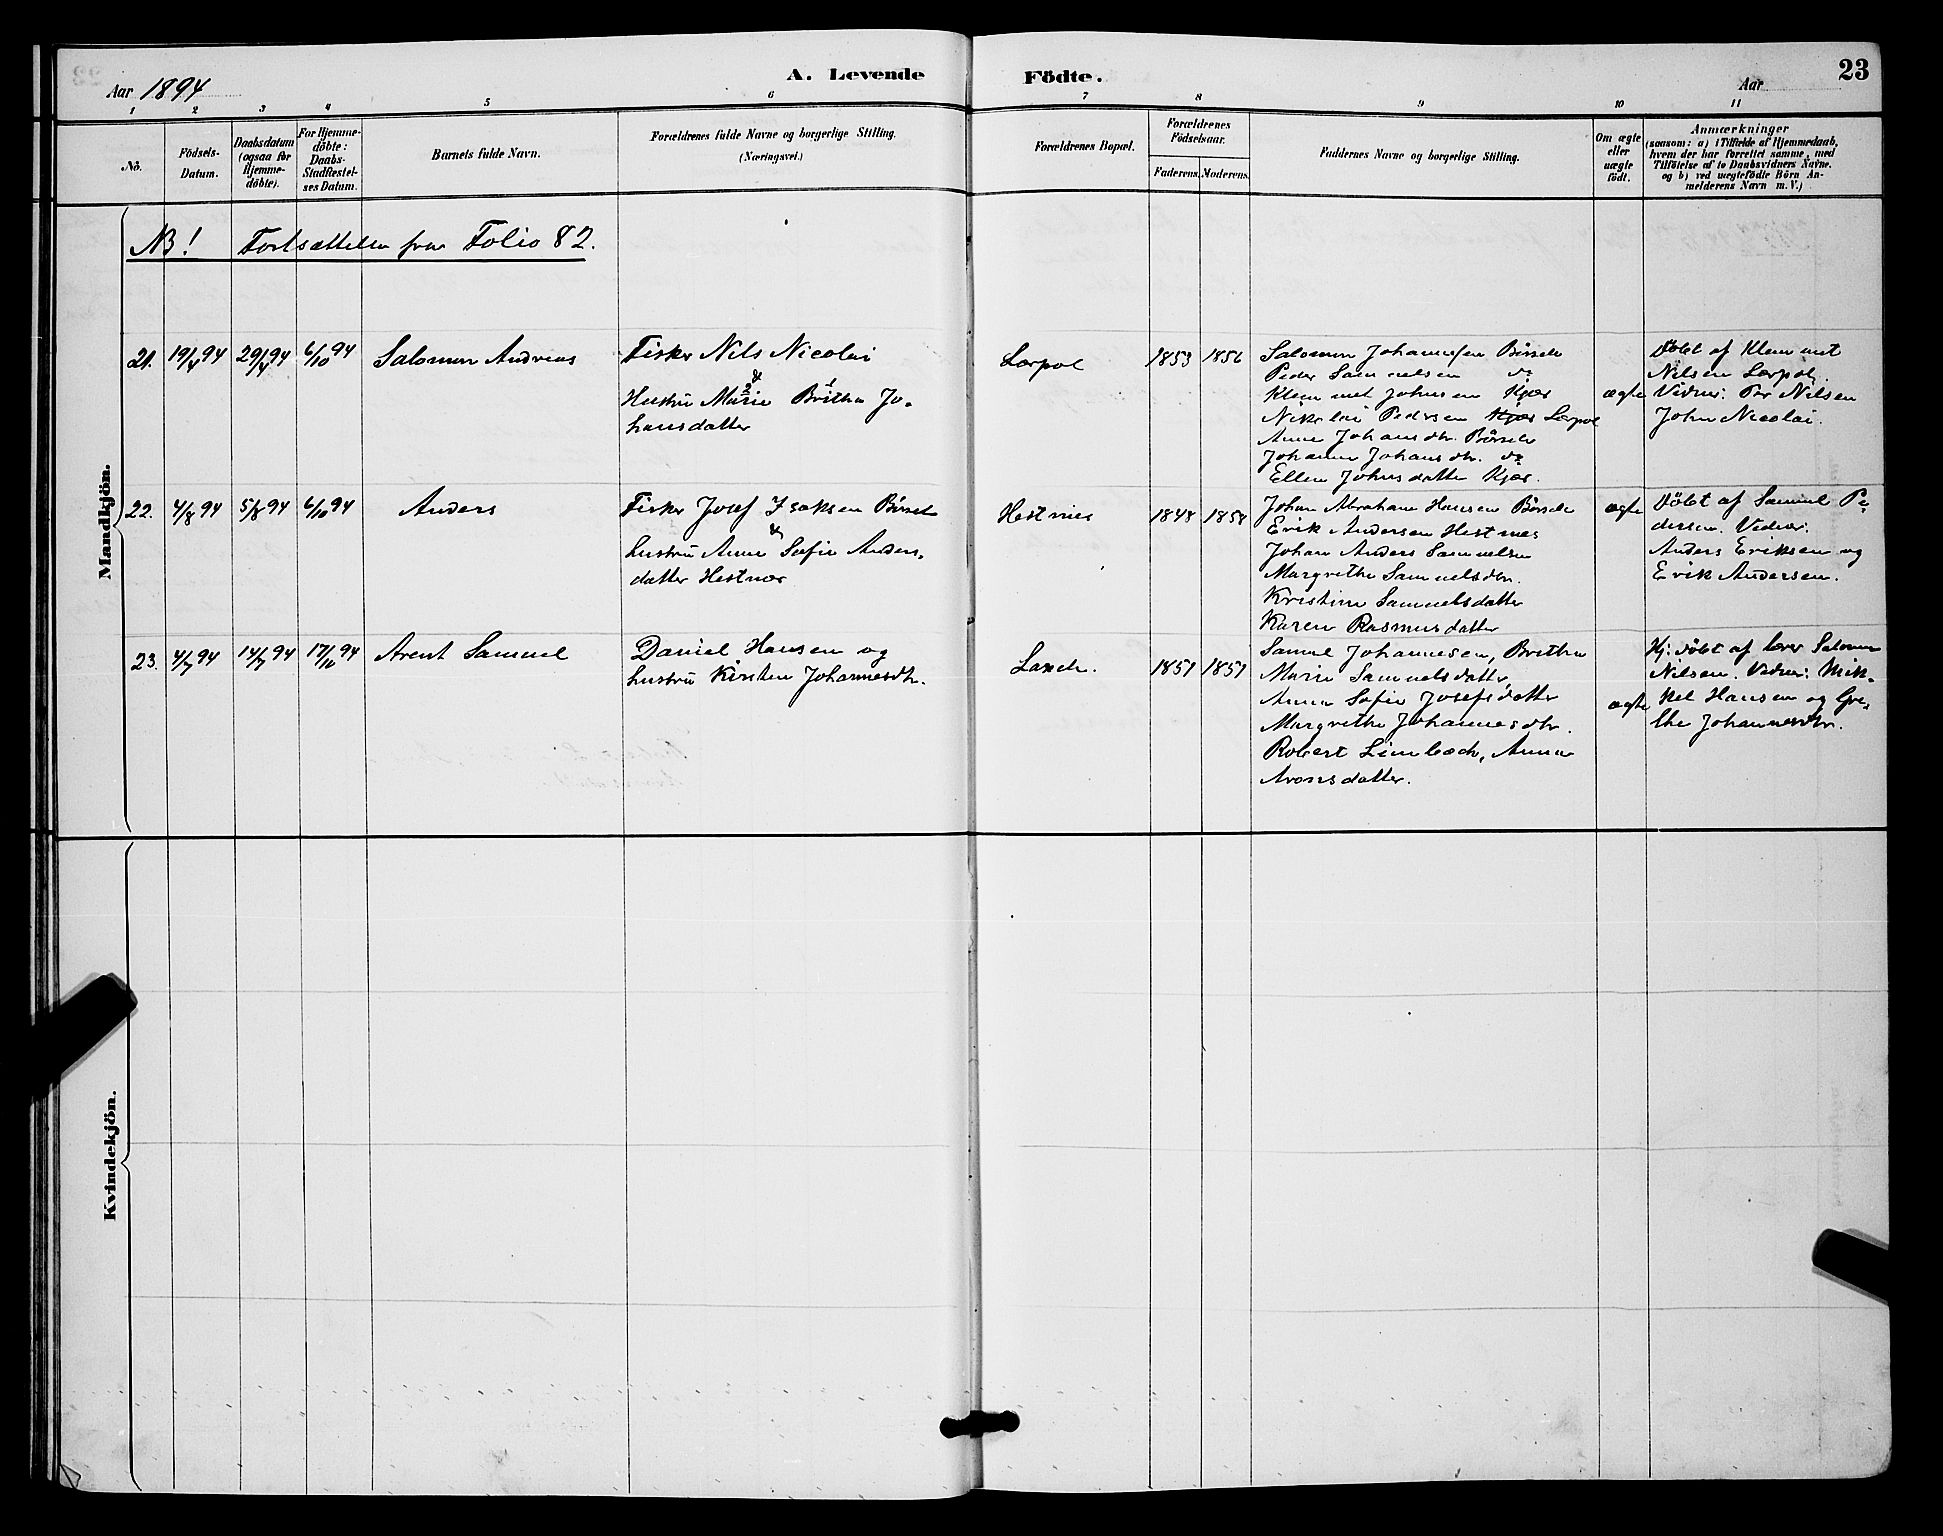 Aar 1894
A. Levende
Födte.
Aar
23
1 2 3 4 5 6 7 8 9 10 11
No.
Födsels-
Datum.
Daabsdatum
(ogsaa for
Hjemme-
döbte).
For Hjemme-
döbte:
Daabs-
Stadfæstel-
ses Datum.
Barnets fulde Navn.
Forældrenes fulde Navne og borgerlige Stilling.
(Næringsvei.)
Forældrenes Bopæl.
Forældrenes
Födselsaar.
Faderens. Moderens.
Faddernes Navne og borgerlige Stilling.
Om ægte
eller
uægte
födt.
Anmærkninger
(saasom: a) i Tilfælde af Hjemmedaab,
hvem der har forrettet samme, med
Tilföielse af to Daabsvidners Navne.
og b) ved uægtefödte Börn An-
melderens Navn m. V.)
Mandkjön.
NB! Fortsættelse fra Folio 82.
21. 19/4 94 29/4 94 6/10 94 Salomon Andreas
Fisker Nils Nicolai
&
Hustru Marie Britha Jo-
hansdatter
Lerpol 1853 1856
Salomon Johannesen Börsele
Peder Samuelsen do
Klemmet Johnsen Kjær
Nikolai Pedersen Kjær Lerpol
Anne Johansdtr. Börsele
Johanne Johansdtr. do
Ellen Johnsdatter Kjær.
ægte
Döbt af Klemmet
Nilsen Lerpol.
Vidner: Per Nilsen
John Nicolai.
22. 4/8 94 5/8 94 6/10 94 Anders
Fisker Josef Isaksen Börsele
&
hustru Anne Sofie Anders-
datter Hestnes
Hestnes 1848 1858
Johan Abraham Hansen Börsele
Erik Andersen Hestnes
Johan Anders Samuelsen
Margrethe Samuelsdtr.
Kristine Samuelsdatter
Karen Rasmusdatter
ægte
Döbt af Samuel Pe-
dersen. Vidner:
Anders Eriksen og
Erik Andersen.
23. 4/7 94 14/7 94 17/10 94 Arent Samuel
Daniel Hansen og
hustru Kirsten Johannesdtr.
Laxelv. 1851 1851
Samuel Johannesen, Brithe
Marie Samuelsdatter,
Anna Sofie Josefsdatter
Margrethe Johannesdtr.
Robert Limbæck, Anna
Aronsdatter.
ægte
Hj: döbt af lærer Salomon
Nilsen. Vidner: Mik-
kel Hansen og Gre-
the Johannesdtr.
Kvindekjön.